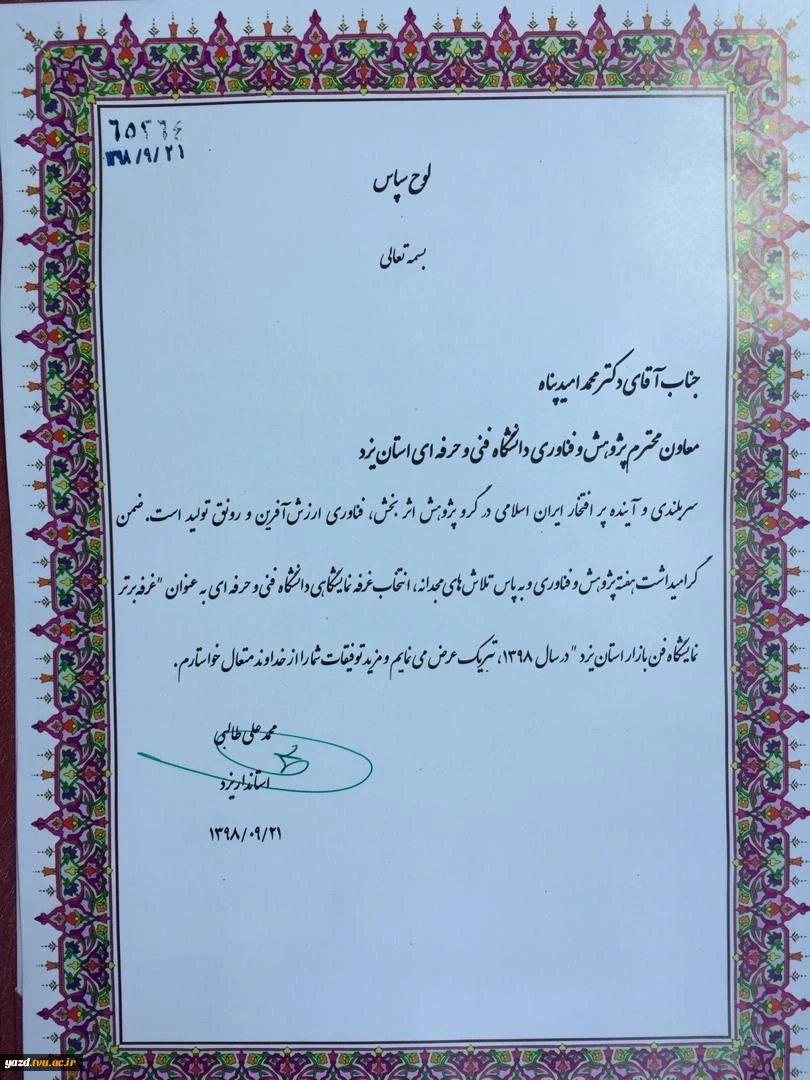 ۶۵۲۶٤
۱۳۹۸/۹/۲۱
لوح سپاس
بسمه تعالی
جناب آقای دکتر محمد امیدپناه
معاون محترم پژوهش و فناوری دانشگاه فنی و حرفه ای استان یزد
سربلندی و آینده پر افتخار ایران اسلامی در گرو پژوهش اثر بخش، فناوری ارزش‌آفرین و رونق تولید است. ضمن
گرامیداشت هفته پژوهش و فناوری و به پاس تلاش‌های مجدانه، انتخاب غرفه نمایشگاهی دانشگاه فنی و حرفه ای به عنوان "غرفه برتر
نمایشگاه فن بازار استان یزد" در سال ۱۳۹۸، تبریک عرض می نمایم و مزید توفیقات شما را از خداوند متعال خواستارم.
محمد علی طالبی
استاندار یزد
۱۳۹۸/۰۹/۲۱
yazd.tvu.ac.ir